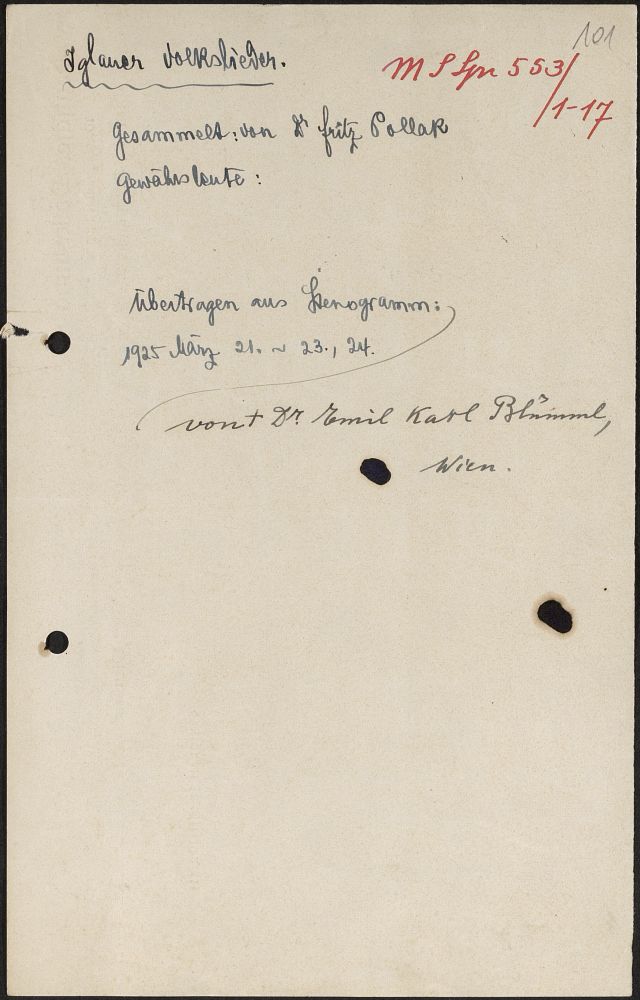 101
Iglauer Volkslieder.
M S Spr 553/
/1-17
Gesammelt: von Dr Fritz Pollak
Gewährsleute:
Übertragen aus Stenogramm:
1925 März 21. ~ 23., 24.
von † Dr. Emil Karl Blümml,
Wien.